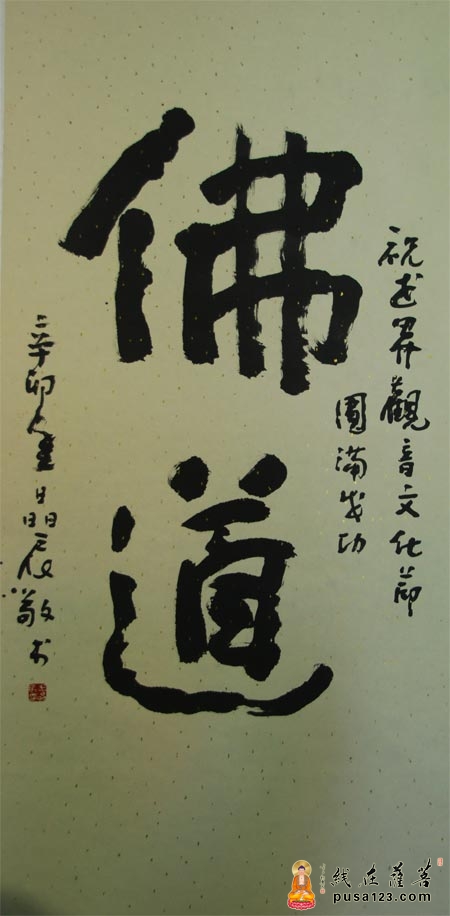 祝世界觀音文化節
圓滿成功
佛道
辛卯 敬书
菩薩在线
pusa123.com